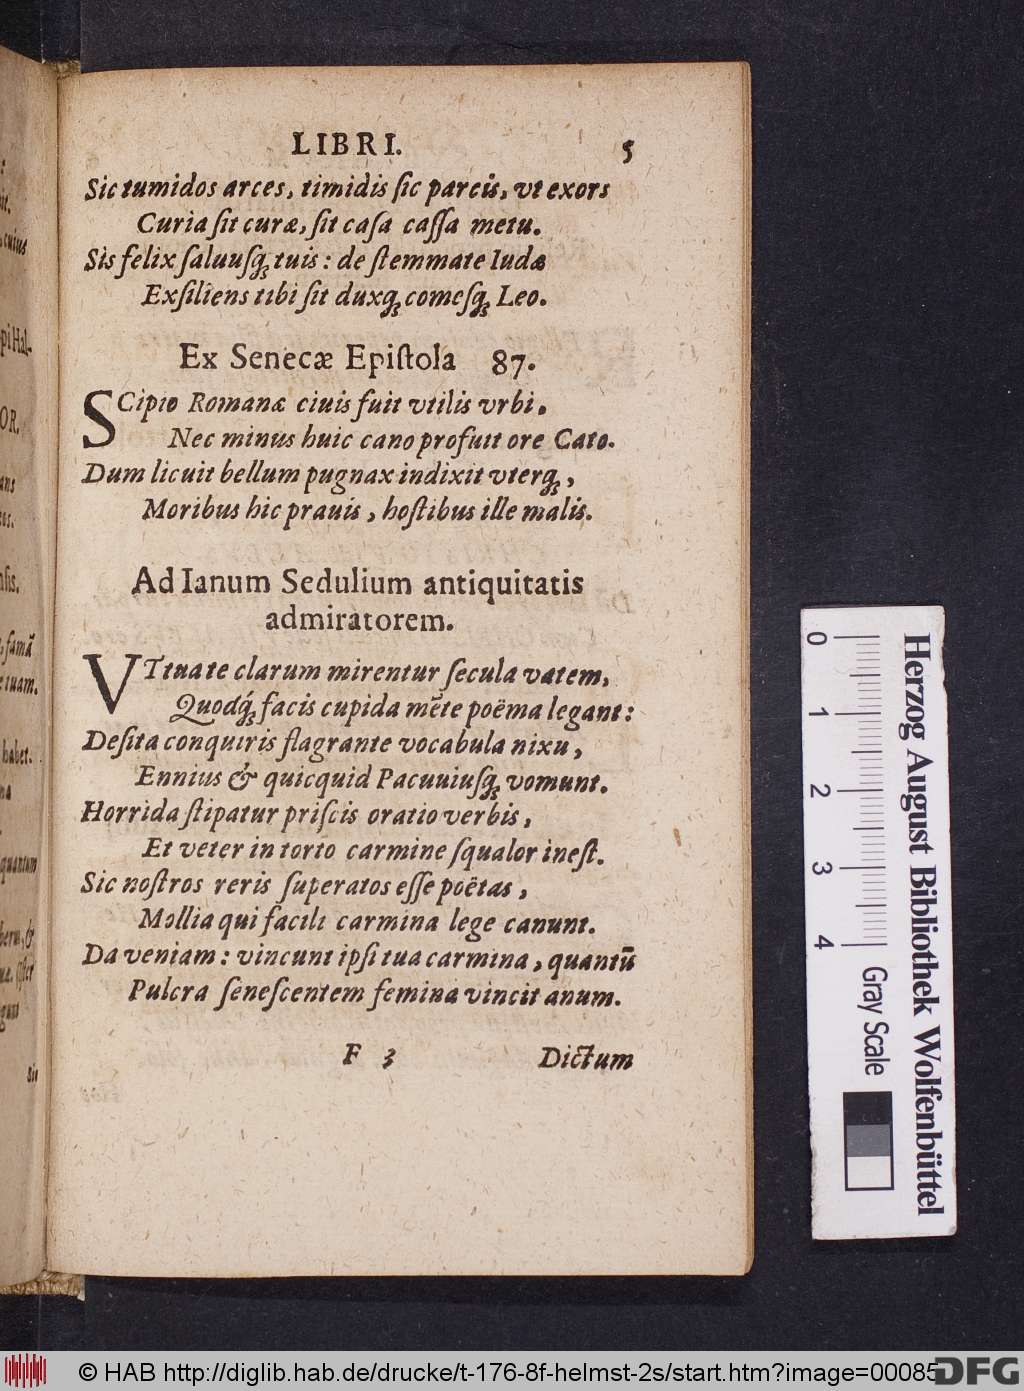 LIBRI. 5
Sic tumidos arces, timidis ſic parcis, vt exors
Curia ſit curæ, ſit caſa caſſa metu.
Sis felix ſaluuſq; tuis: de ſtemmate Iudæ
Exſiliens tibi ſit duxq; comeſq; Leo.
Ex Senecæ Epiſtola 87.
SCipio Romanæ ciuis fuit vtilis vrbi.
Nec minus huic cano profuit ore Cato.
Dum licuit bellum pugnax indixit vterq;,
Moribus hic prauis, hoſtibus ille malis.
Ad Ianum Sedulium antiquitatis
admiratorem.
VT tua te clarum mirentur ſecula vatem,
Quodq́; facis cupida mẽte poëma legant:
Deſita conquiris flagrante vocabula nixu,
Ennius & quicquid Pacuuiuſq; vomunt.
Horrida ſtipatur priſcis oratio verbis,
Et veter in torto carmine ſqualor ineſt.
Sic noſtros reris ſuperatos eſſe poëtas,
Mollia qui facili carmina lege canunt.
Da veniam: vincunt ipſi tua carmina, quantũ
Pulcra ſeneſcentem femina vincit anum.
F 3 Dictum
0 1 2 3 4
Gray Scale
Herzog August Bibliothek Wolfenbüttel
© HAB http://diglib.hab.de/drucke/t-176-8f-helmst-2s/start.htm?image=00085
DFG